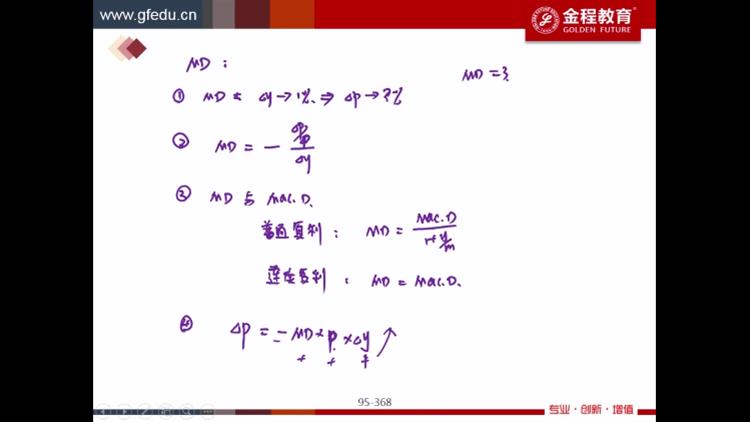 www.gfedu.cn
金程教育
GOLDEN FUTURE
MD :
MD = 3
① MD = Δy → 1% ⇒ Δp → ?%
② MD = - Δp/p / Δy
③ MD 与 Mac.D.
普通复利 : MD = Mac.D / 1+ y/m
连续复利 : MD = Mac.D.
④ Δp = - MD × p × Δy
+ + +
95-368
专业·创新·增值